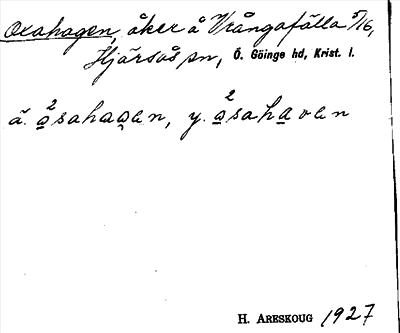 Oxahagen, åker å Vrångafälla 5/16,
Hjärsås sn, Ö. Göinge hd, Krist. l.
ä. ²asahagan, y. ²asahavan
H. ARESKOUG 1927